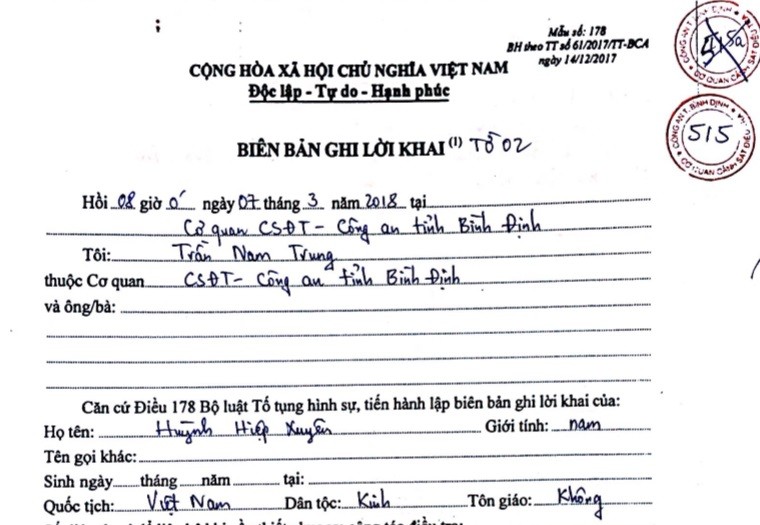 Mẫu số: 178
BH theo TT số 61/2017/TT-BCA
ngày 14/12/2017
CỘNG HÒA XÃ HỘI CHỦ NGHĨA VIỆT NAM
Độc lập - Tự do - Hạnh phúc
515
BIÊN BẢN GHI LỜI KHAI (1) Tờ 02
Hồi 08 giờ 0' ngày 07 tháng 3 năm 2018 tại
Cơ quan CSĐT - Công an tỉnh Bình Định
Tôi: Trần Nam Trung
thuộc Cơ quan CSĐT - Công an tỉnh Bình Định
và ông/bà:
Căn cứ Điều 178 Bộ luật Tố tụng hình sự, tiến hành lập biên bản ghi lời khai của:
Họ tên: Huỳnh Hiệp Xuyên Giới tính: nam
Tên gọi khác:
Sinh ngày tháng năm tại:
Quốc tịch: Việt Nam Dân tộc: Kinh Tôn giáo: Không